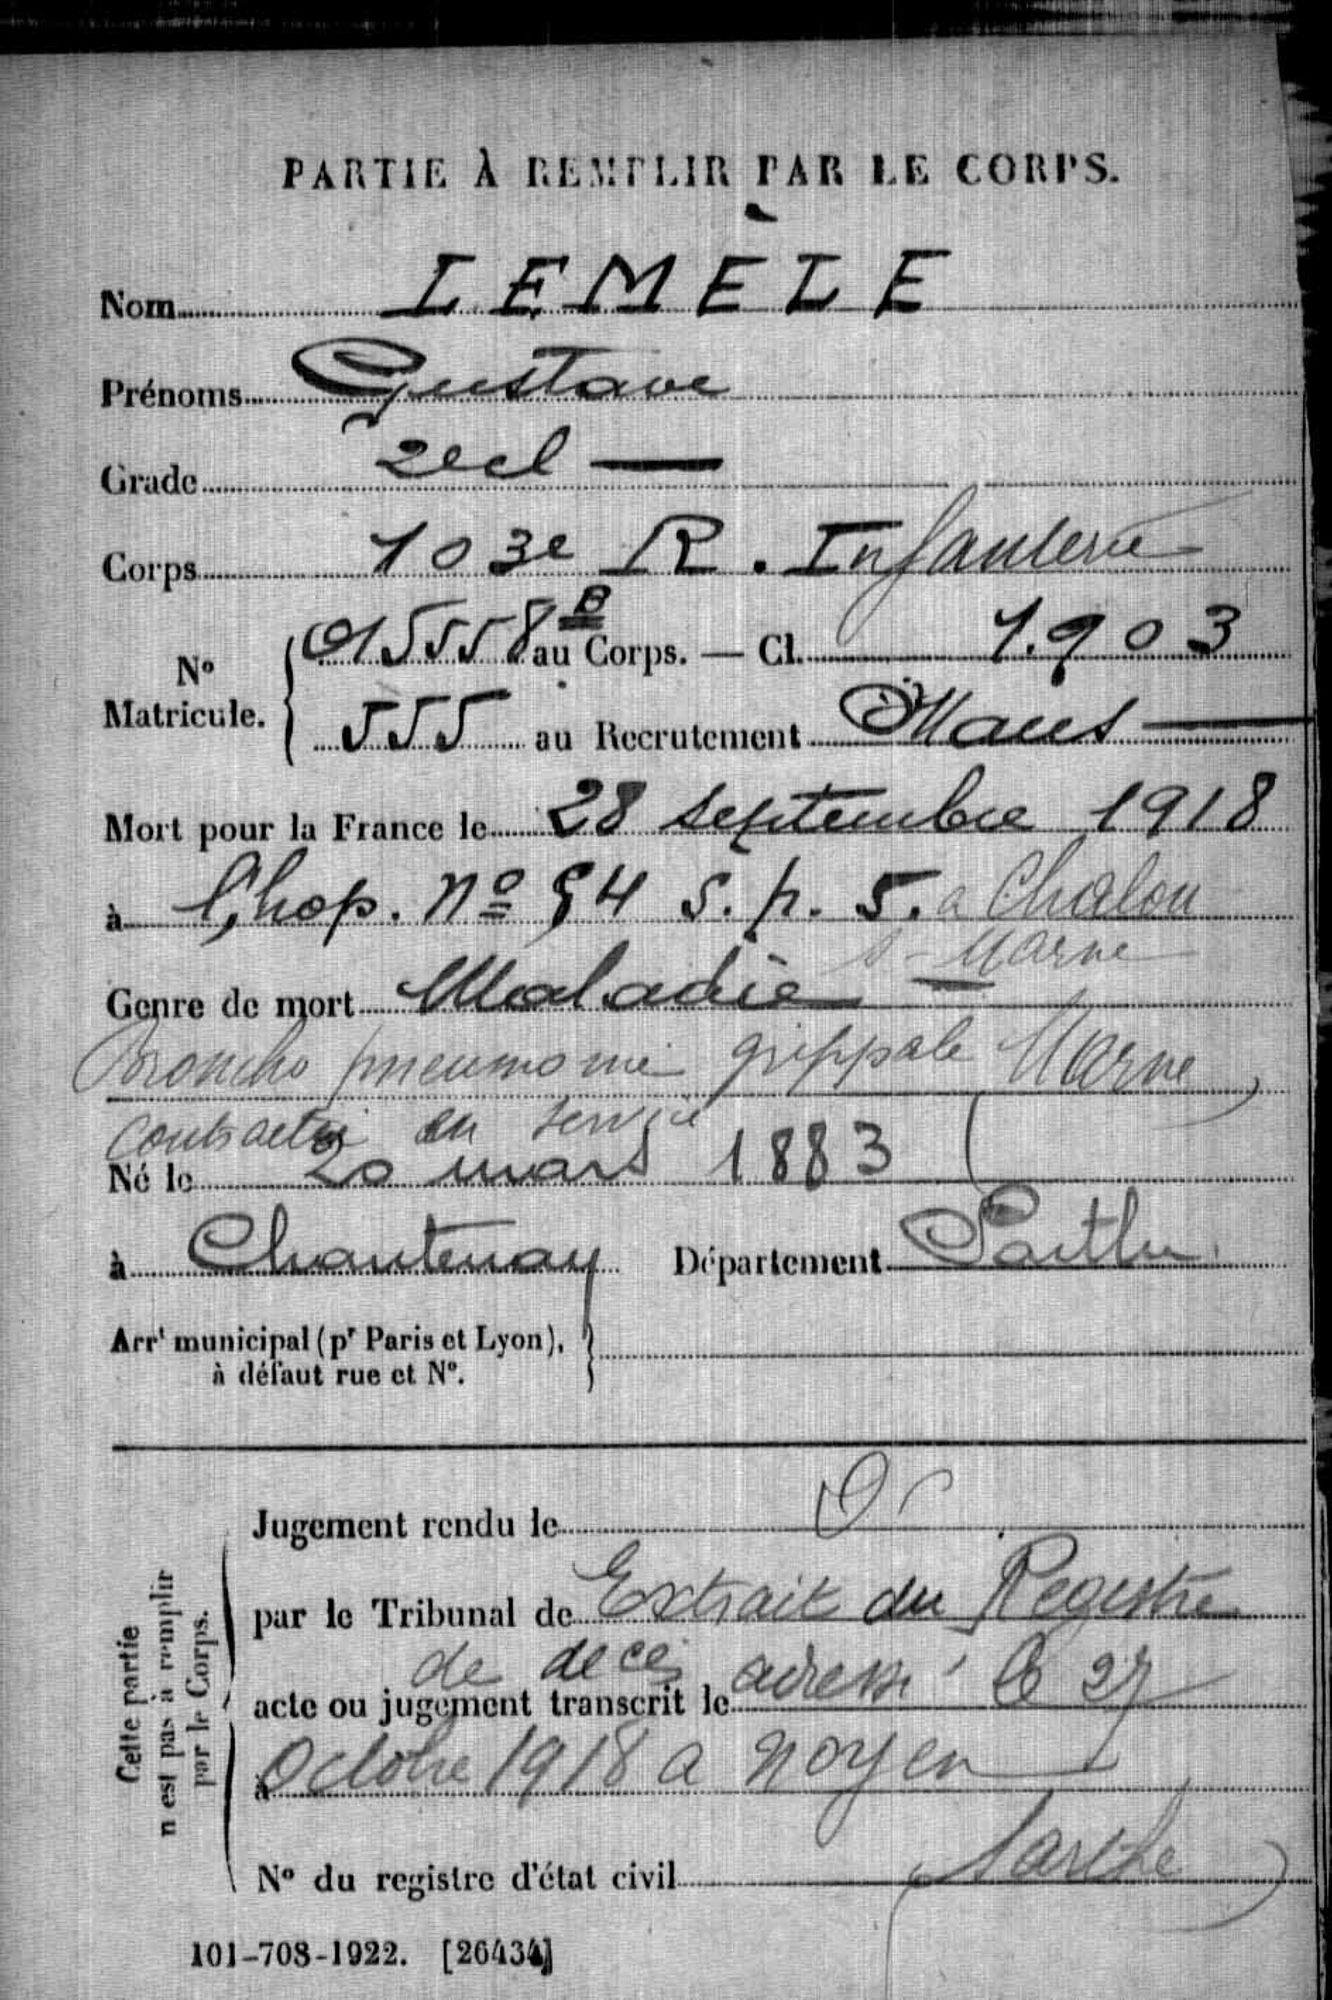 PARTIE À REMPLIR PAR LE CORPS.
Nom LEMÈLE
Prénoms Gustave
Grade 2e cl —
Corps 103e R. Infanterie
N° Matricule. 015558 B au Corps. — Cl. 1.903
555 au Recrutement Mans —
Mort pour la France le 28 septembre 1918
à l'hop. n° 54 S.p. 5. a Chalon
s - Marne
Genre de mort Maladie
Broncho pneumonie grippale Marne
contractée en service
Né le 20 mars 1883
à Chantenay Département Sarthe
Arrt municipal (pr Paris et Lyon),
à défaut rue et N°.
Cette partie
n'est pas à remplir
par le Corps.
Jugement rendu le
par le Tribunal de Extrait du Registre
de deces adressé le 27
acte ou jugement transcrit le
à Octobre 1918 a Noyen
Sarthe
N° du registre d'état civil
101-708-1922. [26434]